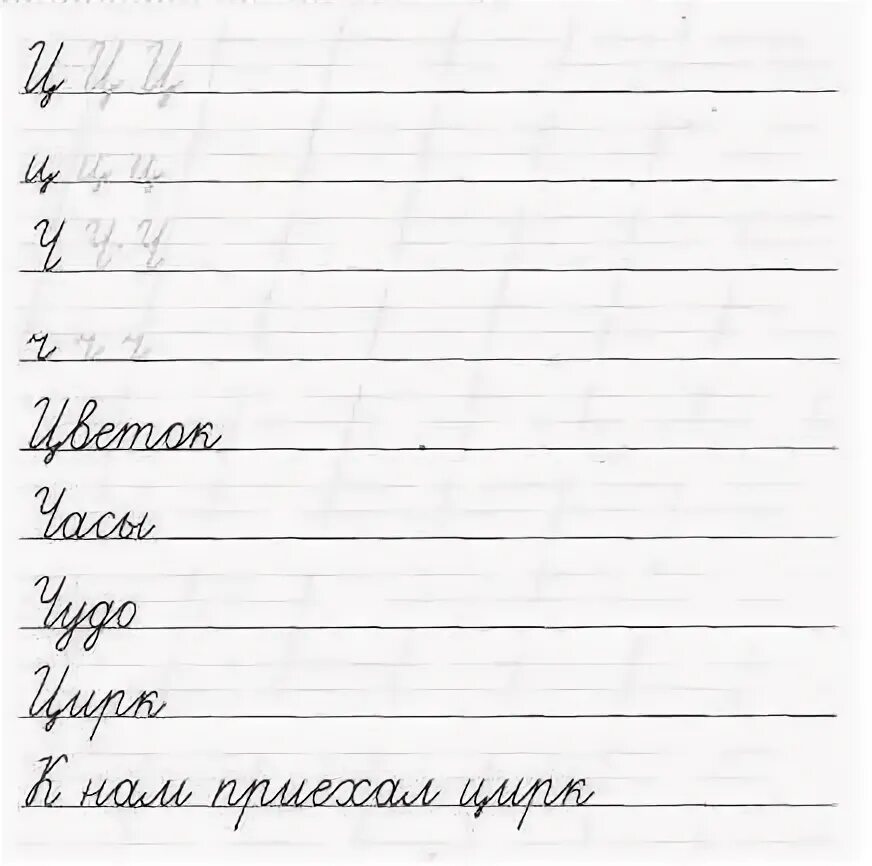 Ц Ц Ц
ц ц ц
Ч Ч Ч
ч ч ч
Цветок
Часы
Чудо
Цирк
К нам приехал цирк